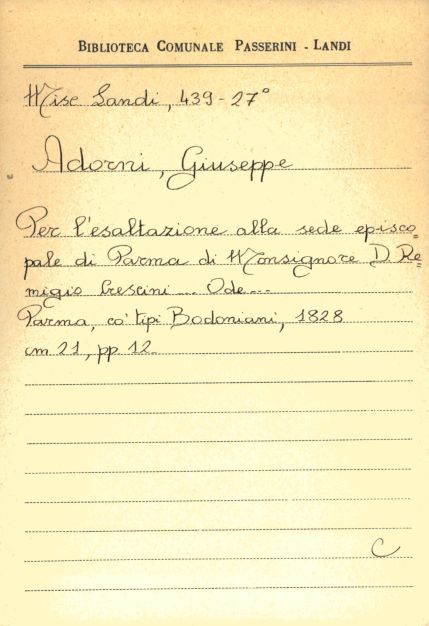 BIBLIOTECA COMUNALE PASSERINI - LANDI
Misc Landi, 439-27°
Adorni, Giuseppe
Per l'esaltazione alla sede episco=
pale di Parma di Monsignore D. Re=
migio Crescini ... Ode...
Parma, co' tipi Bodoniani, 1828
cm 21, pp. 12.
C